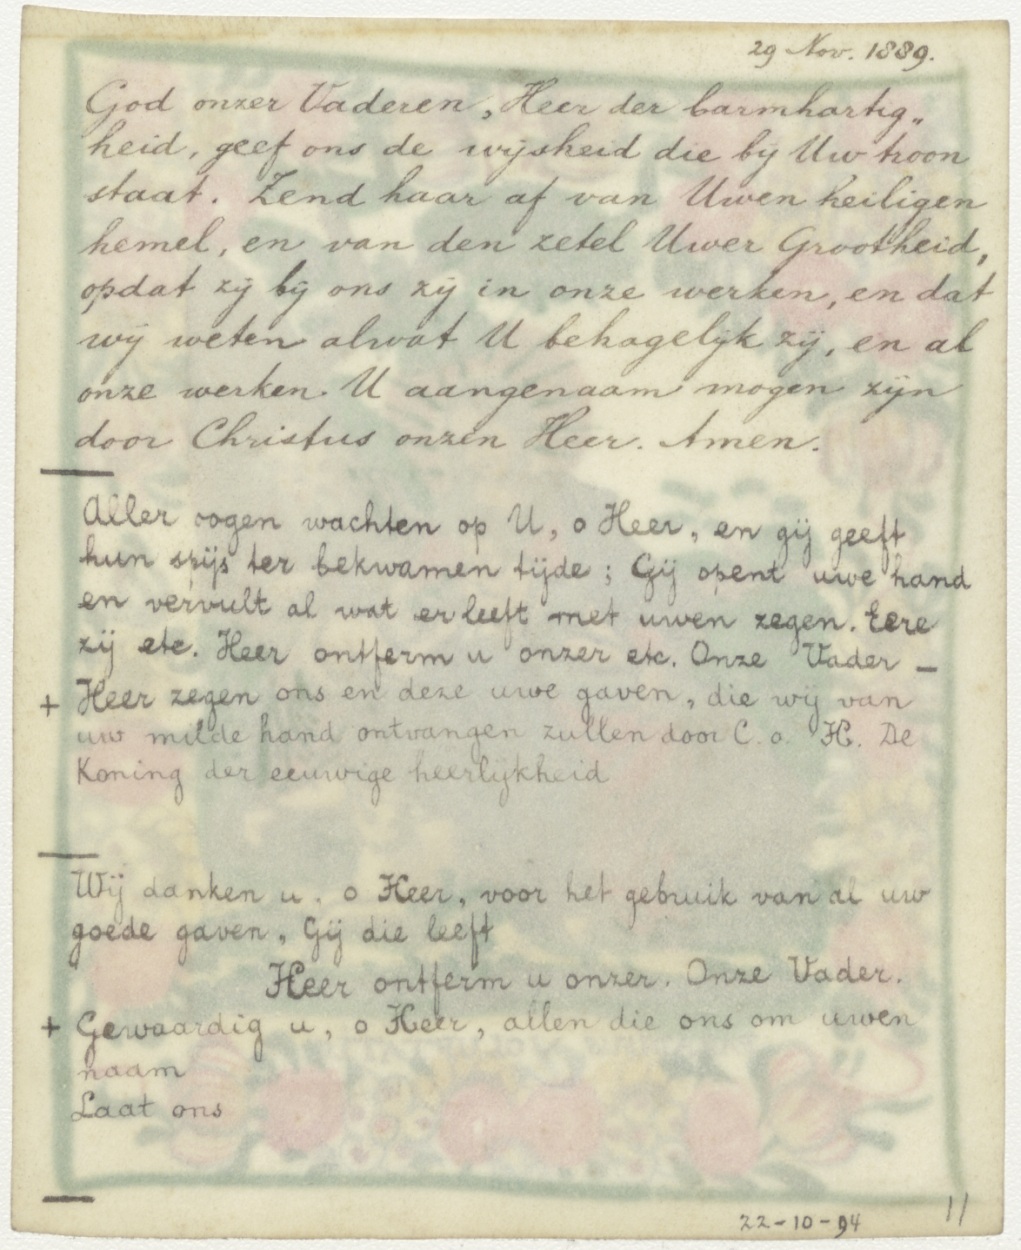 29 Nov. 1889.
God onzer Vaderen, Heer der barmhartig„
heid, geef ons de wijsheid die bij Uw troon
staat. Zend haar af van Uwen heiligen
hemel, en van den zetel Uwer Grootheid,
opdat zij bij ons zij in onze werken, en dat
wij weten alwat U behagelijk zij, en al
onze werken U aangenaam mogen zijn
door Christus onzen Heer. Amen.
Aller oogen wachten op U, o Heer, en gij geeft
hun spijs ter bekwamen tijde; Gij opent uwe hand
en vervult al wat er leeft met uwen zegen. Eere
zij etc. Heer ontferm u onzer etc. Onze Vader –
+ Heer zegen ons en deze uwe gaven, die wij van
uw milde hand ontvangen zullen door C. o. H. De
Koning der eeuwige heerlijkheid
Wij danken u, o Heer, voor het gebruik van al uw
goede gaven, Gij die leeft
Heer ontferm u onzer. Onze Vader.
+ Gewaardig u, o Heer, allen die ons om uwen
naam
Laat ons
22-10-94
11